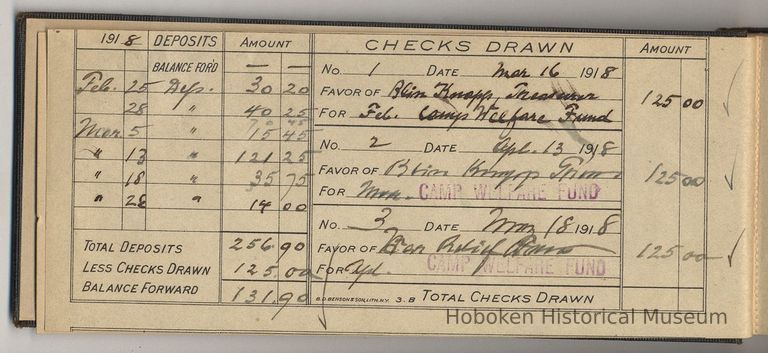 1918 DEPOSITS AMOUNT
BALANCE FOR'D — —
Feb. 25 Dep. 30 20
28 " 40 25
70 45
Mar. 5 " 15 45
" 13 " 121 25
" 18 " 35 75
" 28 " 14 00
TOTAL DEPOSITS 256.90
LESS CHECKS DRAWN 125.00
BALANCE FORWARD 131.90
CHECKS DRAWN AMOUNT
No. 1 DATE Mar 16 1918
FAVOR OF Blin Knapp Treasurer 125 00
FOR Feb. Camp Welfare Fund
No. 2 DATE Apl. 13 1918
FAVOR OF Blin Knapp Treas 125 00
FOR Mar. CAMP WELFARE FUND
No. 3 DATE May 18 1918
FAVOR OF War Relief 125 00
FOR Apl. CAMP WELFARE FUND
B.D. BENSON & SON, LITH. N.Y. 3.B TOTAL CHECKS DRAWN
Hoboken Historical Museum